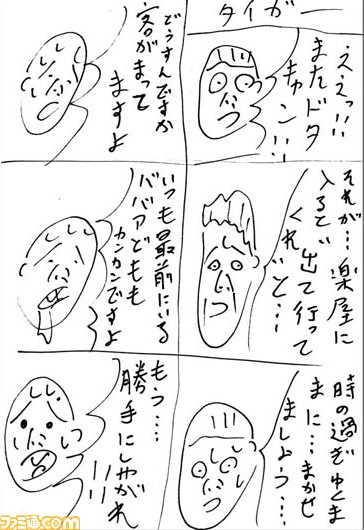 タイガー
ええっ!!
またドタ
キャン!!
どうすんですか
客がまって
ますよ
それが…楽屋に
入るでい
出て行って
くれいと…
いつも最前にいる
ババアどもも
カンカンですよ
時の過ぎゆくま
まに…まかせ
ましょう…
もう…
勝手にしやがれ
!!!
ファミ通.com